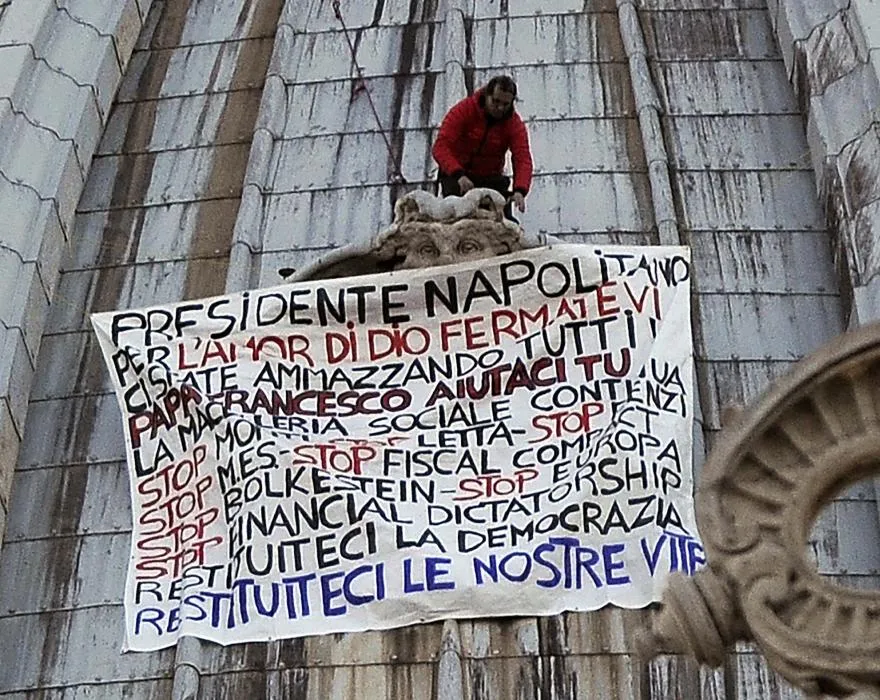 PRESIDENTE NAPOLITANO
PER L'AMOR DI DIO FERMATEVI
CI STATE AMMAZZANDO TUTTI!
PAPA FRANCESCO AIUTACI TU
LA MACELLERIA SOCIALE CONTINUA
STOP MONTI LETTA-STOP
STOP M.E.S.-STOP FISCAL COMPACT
STOP BOLKESTEIN-STOP EUROPA
STOP FINANCIAL DICTATORSHIP
RESTITUITECI LA DEMOCRAZIA
RESTITUITECI LE NOSTRE VITE